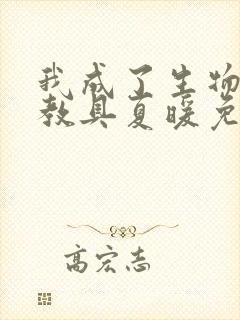 我成了生物
教具夏暖免
高宏志